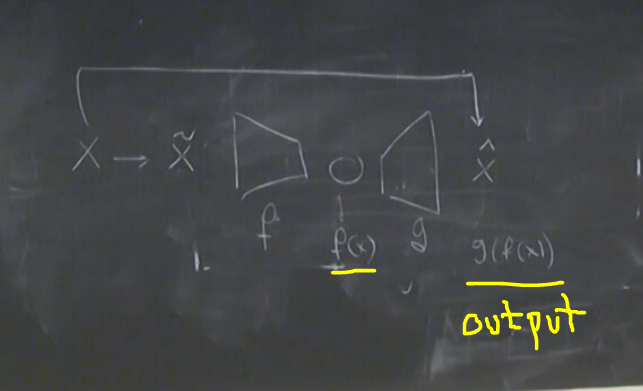 X → X̃ X̂
f f(x) g g(f(x))
output